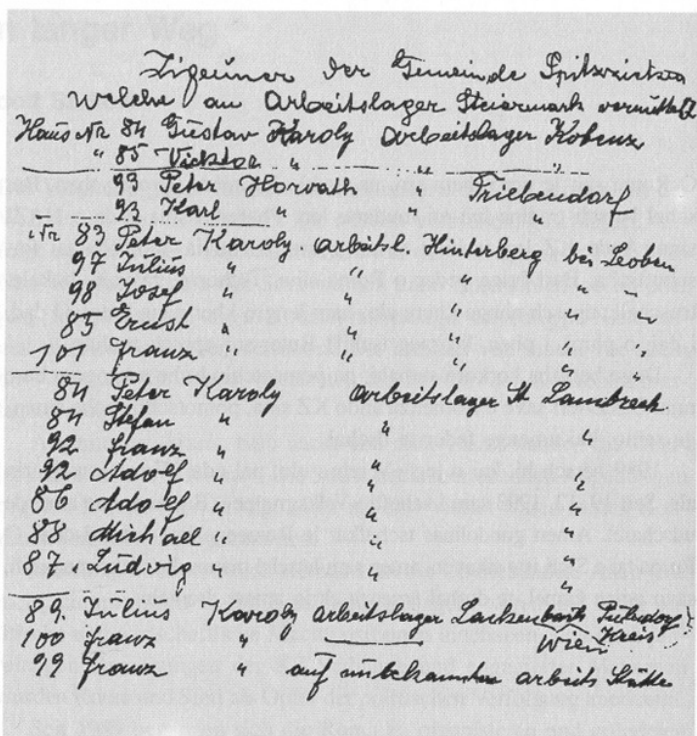 Zigeuner der Gemeinde Spitzzicken
welche an Arbeitslager Steiermark vermittelt
Haus Nr 84 Gustav Karoly Arbeitslager Kobenz
" 85 Vicktor "
99 Peter Horvath " Triebendorf
93 Karl " " "
Nr 83 Peter Karoly Arbeitsl. Hinterberg bei Leoben
97 Julius " " " " "
98 Josef " " " " "
85 Ernst " " " " "
101 Franz " " " " "
84 Peter Karoly Arbeitslager St Lambrech
84 Stefan " " "
92 Franz " " "
92 Adolf " " "
86 Adolf " " "
88 Michael " " "
87 Ludvig " " "
89. Julius Karoly Arbeitslager Lackenbach Kreis
100 Franz " Wien
99 Franz " auf unbekannten Arbeits Stätte